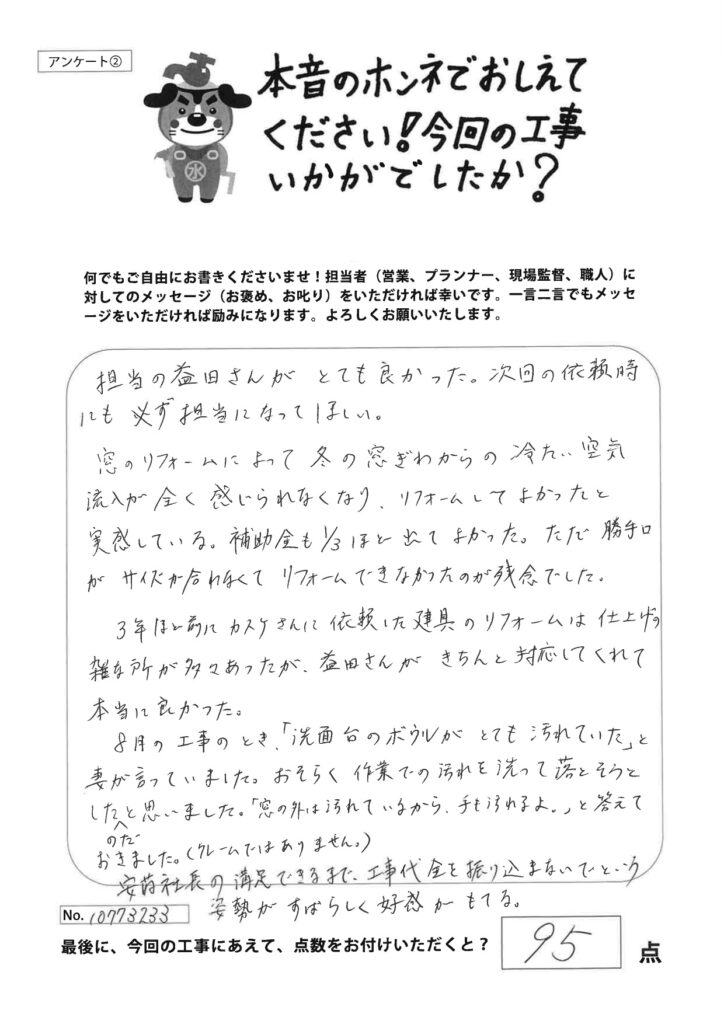 アンケート②
本音のホンネでおしえて
ください!今回の工事
いかがでしたか?
水
何でもご自由にお書きくださいませ!担当者(営業、プランナー、現場監督、職人)に
対してのメッセージ(お褒め、お叱り)をいただければ幸いです。一言二言でもメッセ
ージをいただければ励みになります。よろしくお願いいたします。
担当の益田さんが とても良かった。次回の依頼時
にも 必ず担当になってほしい。
窓のリフォームによって 冬の窓ぎわからの 冷たい空気
流入が 全く感じられなくなり、リフォームしてよかったと
実感している。補助金も1/3ほど出てよかった。ただ 勝手口
が サイズが合わなくて リフォームできなかったのが残念でした。
3年ほど前に カスケさんに依頼した建具のリフォームは 仕上げの
雑な所が多々あったが、益田さんが きちんと対応してくれて
本当に良かった。
8月の工事のとき、「洗面台のボウルが とても汚れていた」と
妻が言っていました。おそらく 作業での汚れを洗って落とそうと
したのだと思いました。「窓の外は汚れているから、手も汚れるよ。」と答えて
おきました。(クレームではありません。)
社長の満足できるまで、工事代金を振り込まないでという
姿勢がすばらしく好感がもてる。
No. 10773233
最後に、今回の工事にあえて、点数をお付けいただくと? 95 点